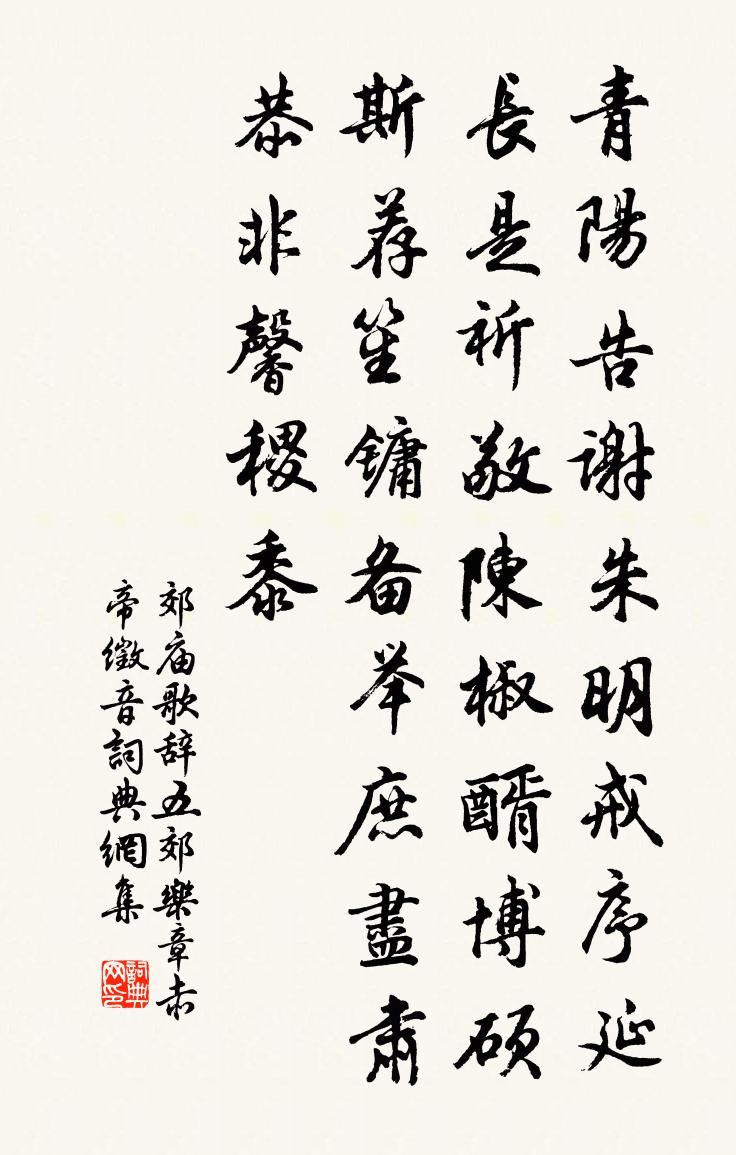 青陽告谢朱明戒序延
長是祈敬陳椒醑博硕
斯荐笙鏞备举庶盡肃
恭非馨稷黍
郊庙歌辞五郊樂章赤
帝徵音詞典網集
詞典网印